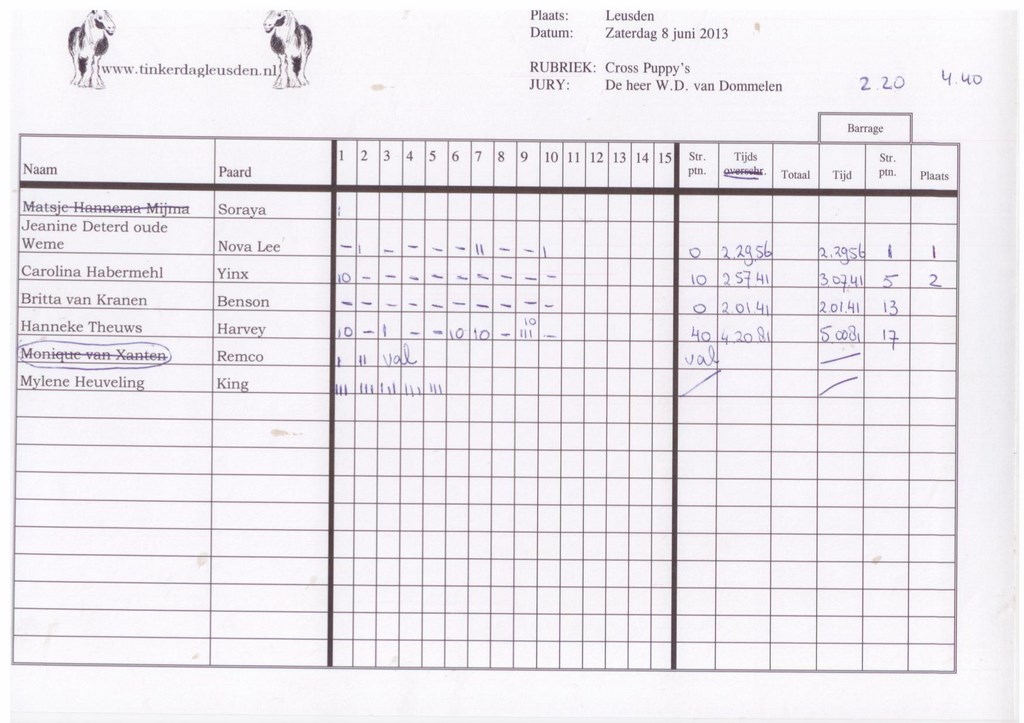 www.tinkerdagleusden.nl
Plaats: Leusden
Datum: Zaterdag 8 juni 2013
RUBRIEK: Cross Puppy's
JURY: De heer W.D. van Dommelen
2.20 4.40
Barrage
Naam Paard 1 2 3 4 5 6 7 8 9 10 11 12 13 14 15 Str. ptn. Tijds overschr. Totaal Tijd Str. ptn. Plaats
Matsje Hannema Mijma Soraya
Jeanine Deterd oude
Weme Nova Lee - | - - - - || - - | 0 2.29.56 2.29.56 1 1
Carolina Habermehl Yinx 10 - - - - - - - - - 10 2.57.41 3.07.41 5 2
Britta van Kranen Benson - - - - - - - - - - 0 2.01.41 2.01.41 13
Hanneke Theuws Harvey 10 - | - - 10 10 - 10 ||| - 40 4.20.81 5.00.81 17
Monique van Xanten Remco | || val val
Mylene Heuveling King ||| ||| ||| ||| |||